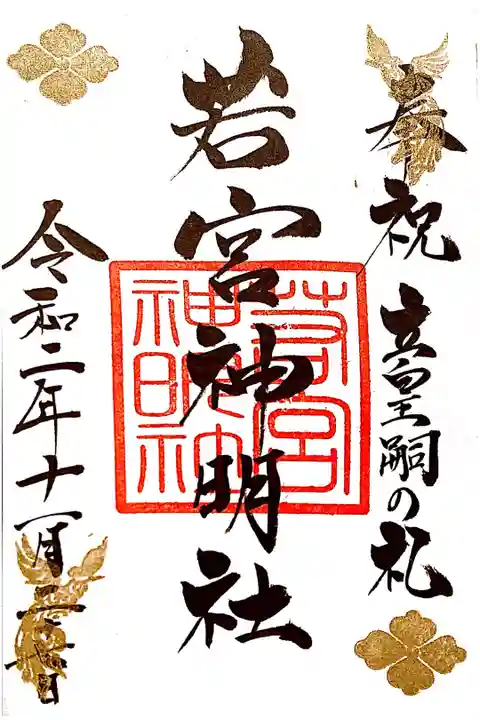 奉祝 立皇嗣の礼
若宮神明社
令和二年十一月
若宮
神明社